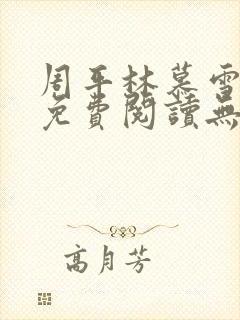 周平林慕雪
免費閱讀無
高月芳